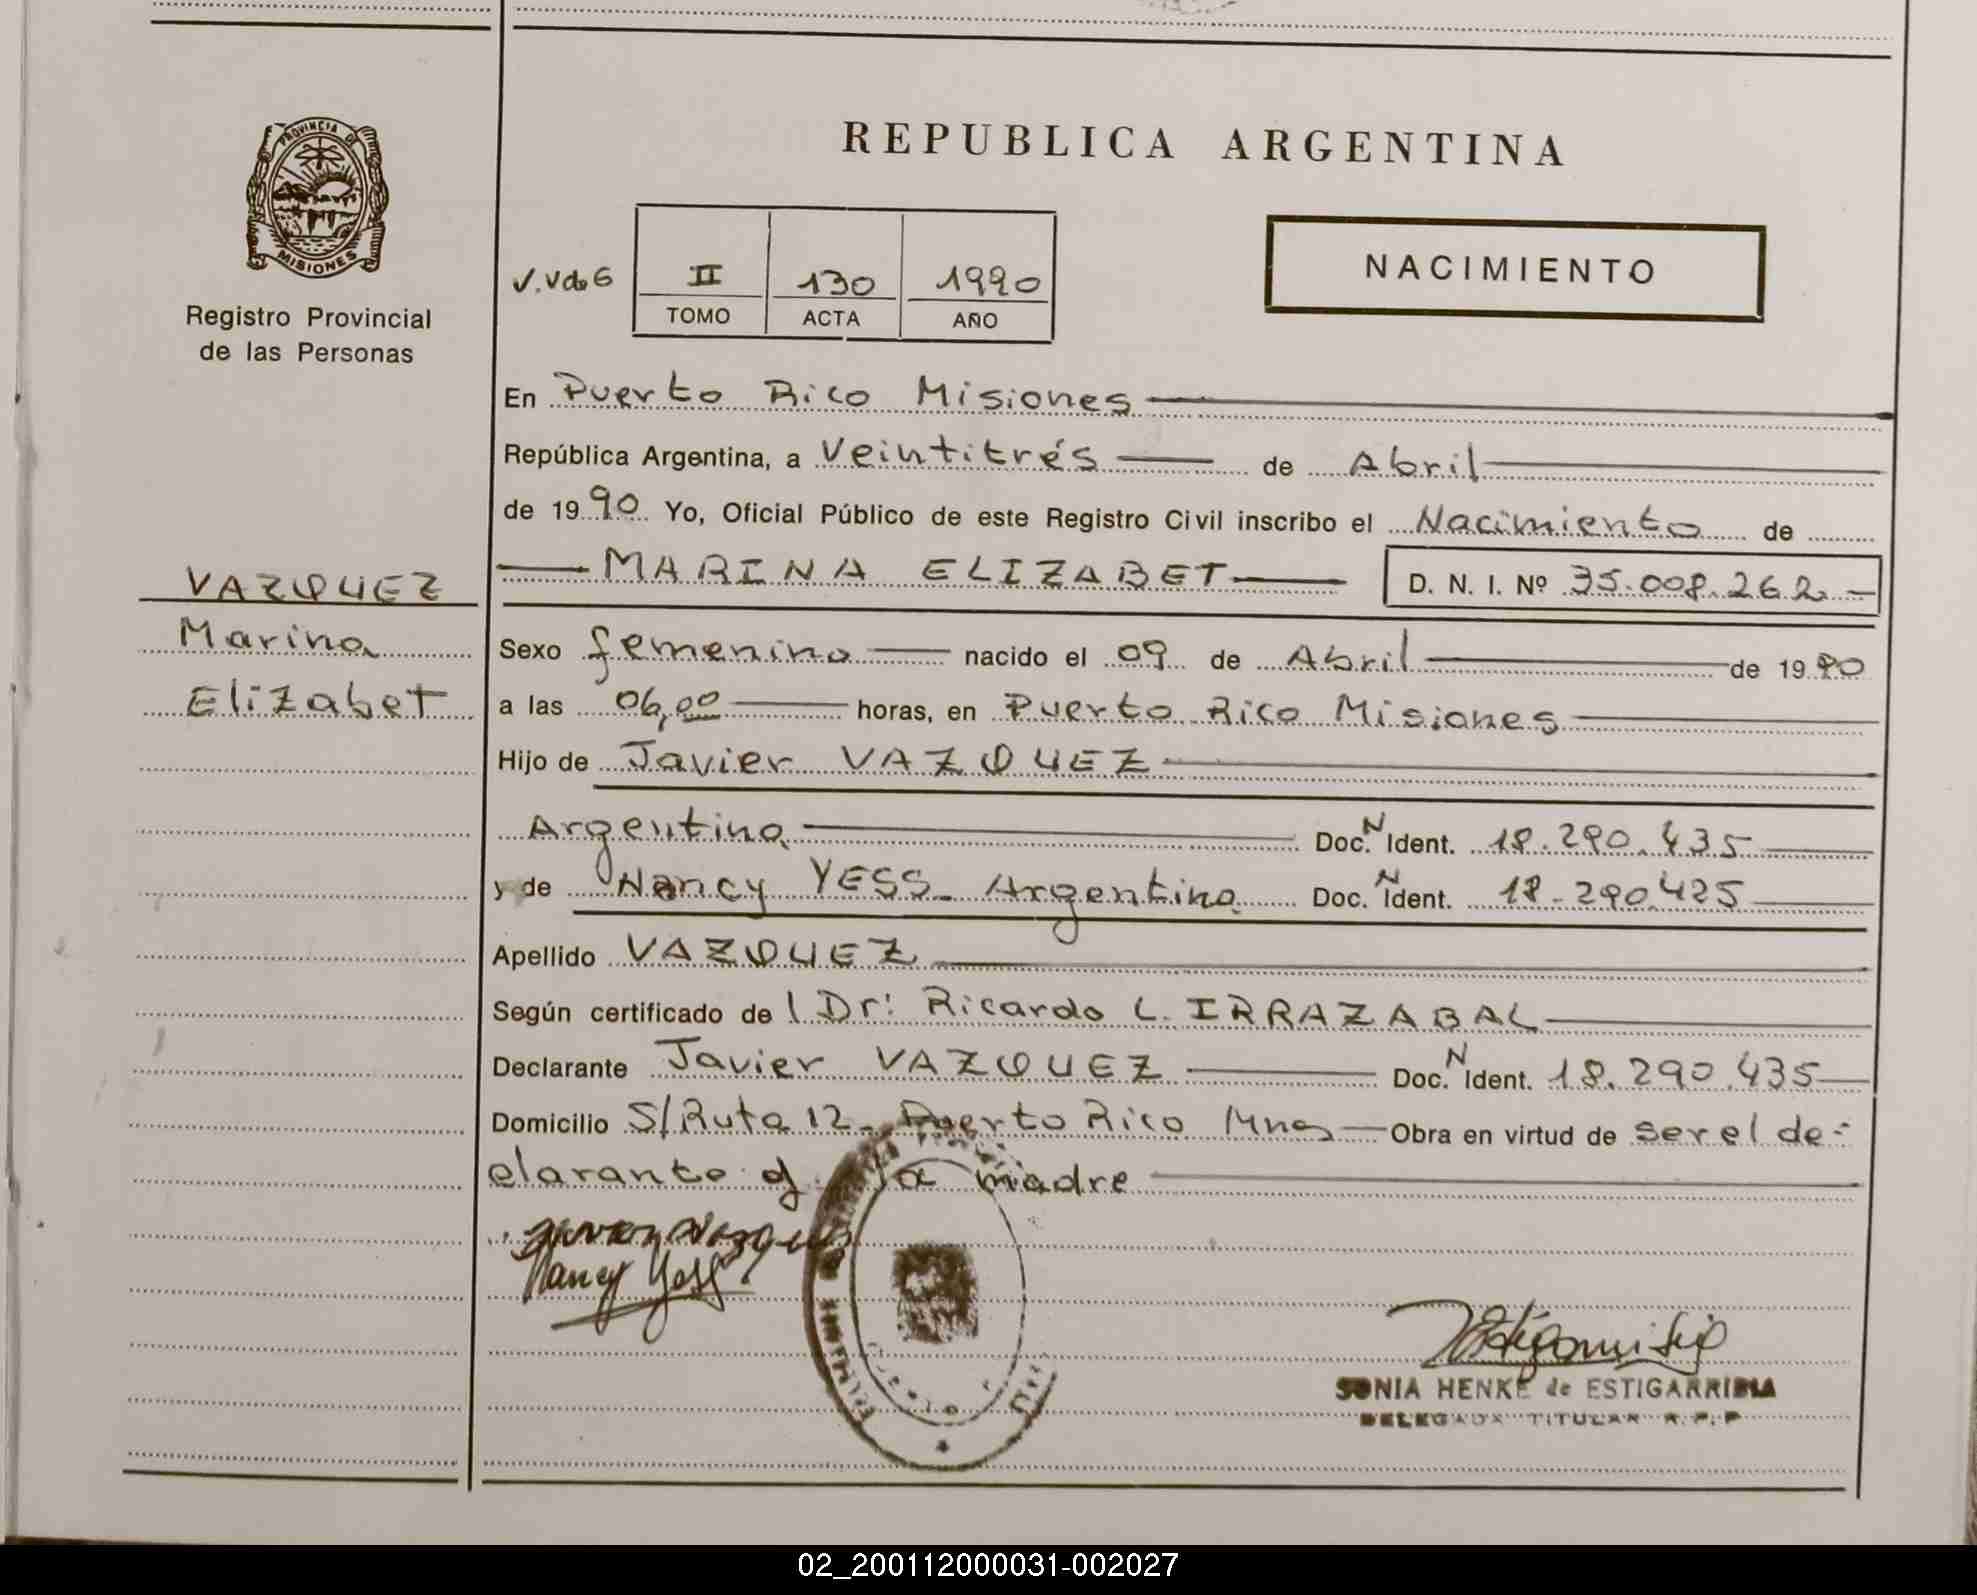 PROVINCIA DE
MISIONES
Registro Provincial
de las Personas
REPUBLICA ARGENTINA
II 130 1990
TOMO ACTA AÑO
NACIMIENTO
En Puerto Rico Misiones
República Argentina, a Veintitrés de Abril
de 1990 Yo, Oficial Público de este Registro Civil inscribo el Nacimiento de
MARINA ELIZABET D. N. I. Nº 35.008.262
VAZQUEZ
Marina
Elizabet
Sexo femenino nacido el 09 de Abril de 1990
a las 06,00 horas, en Puerto Rico Misiones
Hijo de Javier VAZQUEZ
Argentina Doc. N Ident. 18.290.435
y de Nancy YESS Argentina Doc. N Ident. 18.290.425
Apellido VAZQUEZ
Según certificado de l Dr: Ricardo L. IRRAZABAL
Declarante Javier VAZQUEZ Doc. N Ident. 18.290.435
Domicilio S/Ruta 12 Puerto Rico Mnes Obra en virtud de ser el de-
clarante y la madre
Nancy Yess
SONIA HENKE de ESTIGARRIBIA
DELEGADA TITULAR R.P.P
02_200112000031-002027